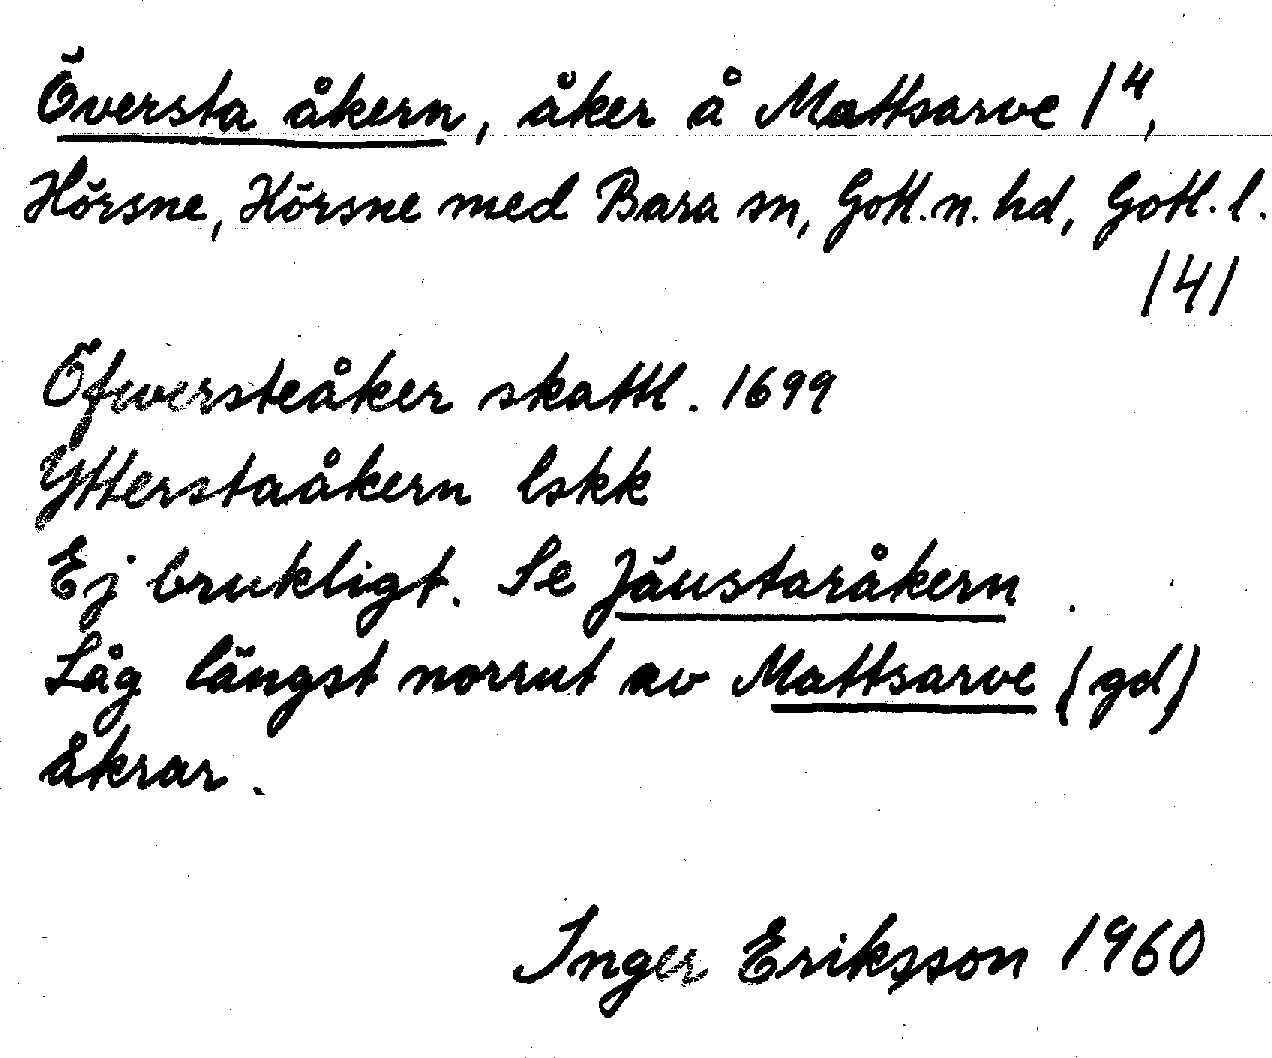 Översta åkern, åker å Mattsarve 1⁴,
Hörsne, Hörsne med Bara sn, Gotl. n. hd, Gotl. l.
/4/
Öfwersteåker skattl. 1699
Ytterstaåkern lskk
Ej brukligt. Se Jäustaråkern.
Låg längst norrut av Mattsarve (gd)
åkrar.
Inger Eriksson 1960